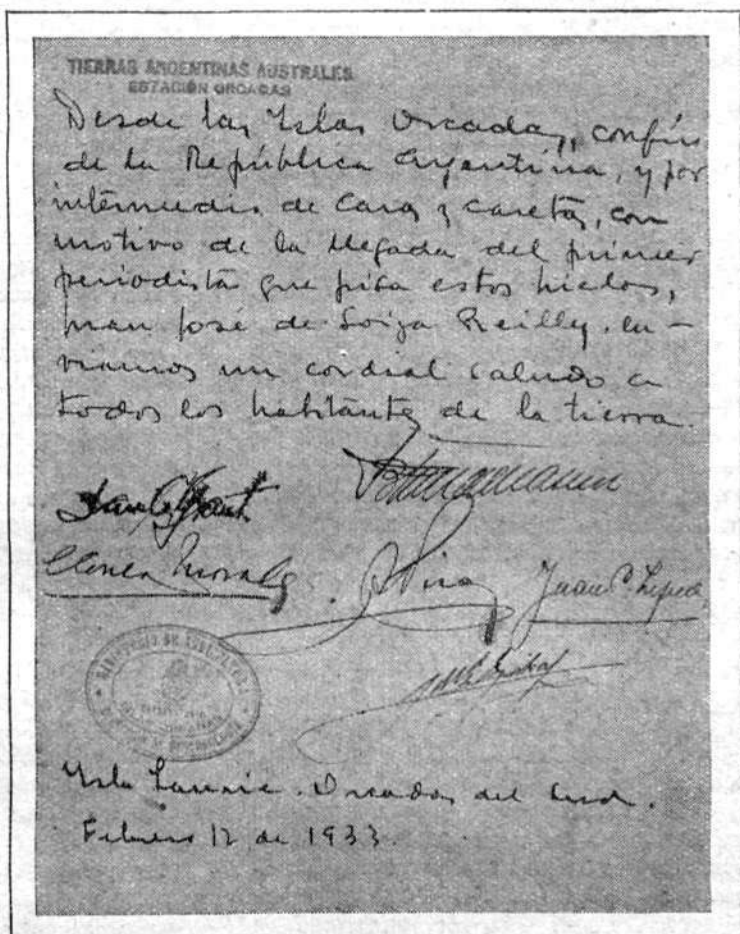 TIERRAS ARGENTINAS AUSTRALES
ESTACIÓN ORCADAS
Desde las Yslas Orcadas, confín
de la República Argentina, y por
intermedio de Caras y Caretas, con
motivo de la llegada del primer
periodista que pisa estos hielos,
Juan José de Soiza Reilly, en-
viamos un cordial saludo a
todos los habitantes de la tierra.
Morales
Juan
MINISTERIO DE AGRICULTURA
Ysla Laurie. Orcadas del Sud.
Febrero 12 de 1933.